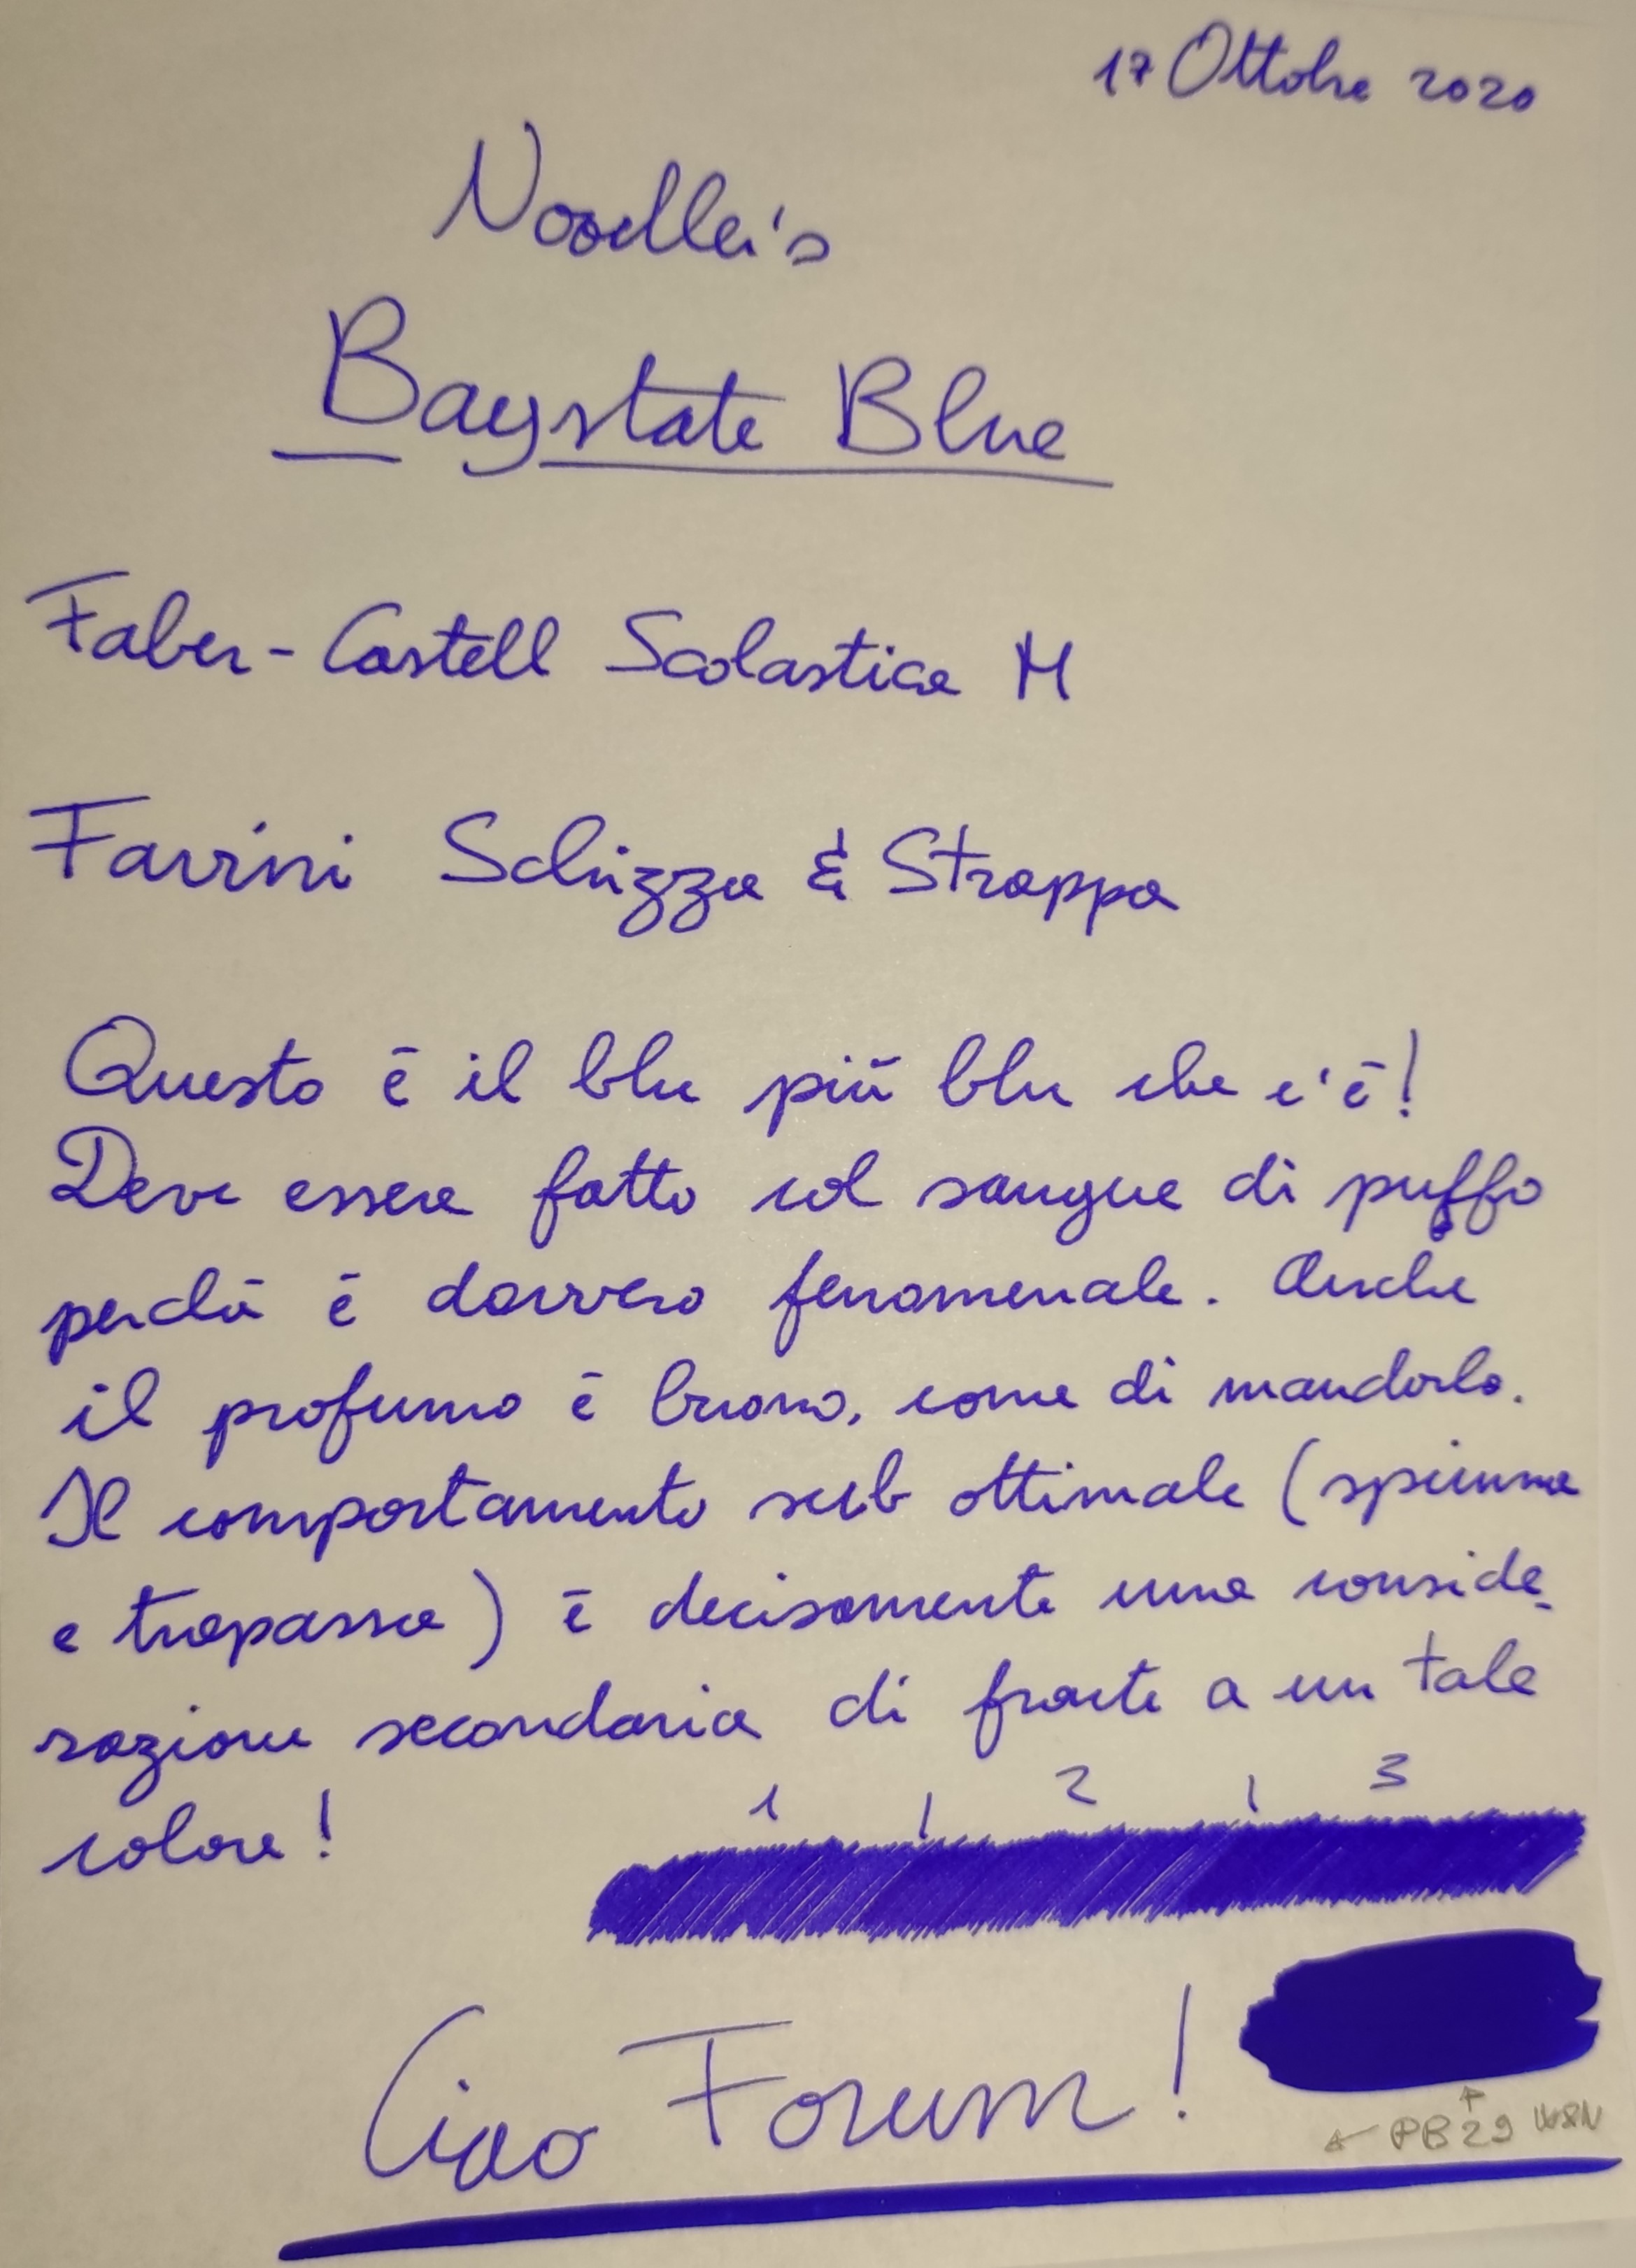 17 Ottobre 2020
Noodler's
Baystate Blue
Faber-Castell Scolastica M
Favini Schizza & Strappa
Questo è il blu più blu che c'è!
Deve essere fatto col sangue di puffo
perché è davvero fenomenale. Anche
il profumo è buono, come di mandorlo.
Il comportamento sub ottimale (spiuma
e trapassa) è decisamente una conside-
razione secondaria di fronte a un tale
colore!
1 | 2 | 3
Ciao Forum!
← PB29 W&N